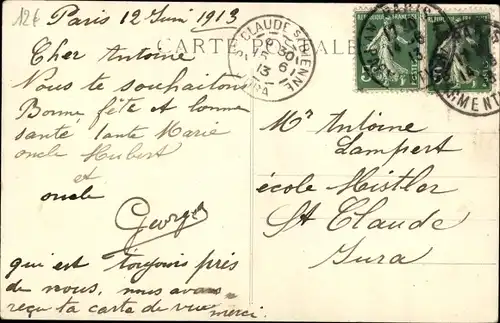 12€
Paris 12 Juin 1913
CARTE POSTALE
Cher Antoine
Nous te souhaitons
Bonne fête et bonne
santé tante Marie
oncle Hubert
et
oncle
George
qui est toujours près
de nous, nous avons
reçu ta carte de vue merci.
ST CLAUDE S/ BIENNE
8 30
15 6
13
JURA
REPUBLIQUE FRANÇAISE
REPUBLIQUE FRANÇAISE
Mr Antoine
Lampert
école Mistler
St Claude
Jura